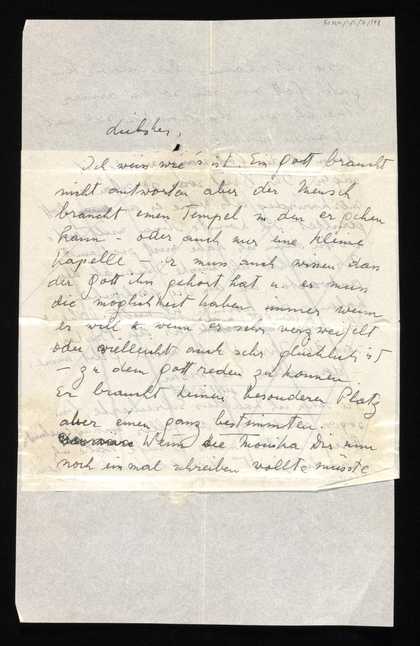 Liebster,
Ich weis wie's ist. Ein Gott braucht
nicht antworten aber der Mensch
braucht einen Tempel in den er gehen
kann - oder auch nur eine kleine
Kapelle - er muss auch wissen dass
der Gott ihn gehört hat u. er muss
die möglichkeit haben immer wenn
er will u. wenn er sehr verzweifelt
oder vielleicht auch sehr glücklich ist
- zu dem Gott reden zu können.
Er braucht keinen besonderen Platz
aber einen ganz bestimmten.
Wenn die Monika Dir nun
noch einmal schreiben wollte müsste